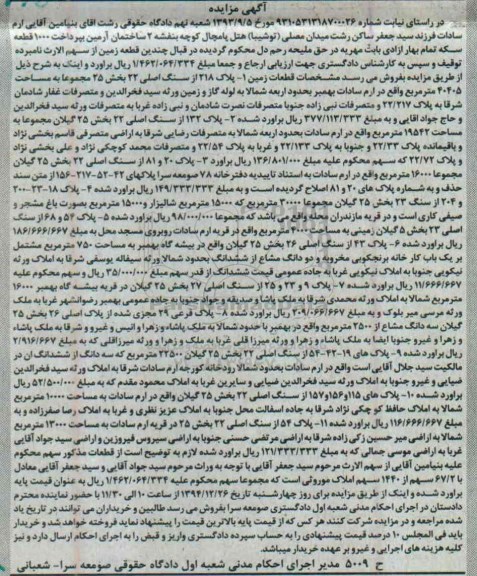 آگهی مزایده
در راستای نیابت شماره ۹۳۱۰۵۳۱۳۱۸۷۰۰۰۲۶ مورخ ۱۳۹۳/۹/۵ شعبه نهم دادگاه حقوقی رشت اقای بنیامین آقایی ارم
سادات فرزند سید جعفر ساکن رشت میدان مصلی (توشیبا) هتل پامچال کوچه بنفشه ۲ ساختمان آرمین بپرداخت ۱۰۰۰ قطعه
سکه تمام بهار ازادی بابت مهریه در حق ملیحه رحم دل محکوم گردیده در قبال چندین قطعه زمین از سهم الارث نامبرده
توقیف و سپس به کارشناس دادگستری جهت ارزیابی ارجاع و جمعا مبلغ ۱/۴۶۲/۰۶۴/۳۳۴ ریال براورد و اینک به شرح ذیل
از طریق مزایده بفروش می رسد مشخصات قطعات زمین ۱- پلاک ۲۱۸ از سنگ اصلی ۲۲ بخش ۲۵ مجموعا به مساحت
۴۰۴۰۵ مترمربع واقع در ارم سادات بهمبر بحدود اربعه شمالا به لوله گاز و زمین ورثه سید فخرالدین و متصرفات غفار شادمان
شرقا به پلاک ۲۲/۲۱۷ و متصرفات نبی زاده جنوبا متصرفات نصرت شادمان و نبی زاده غربا به متصرفات ورثه سید فخرالدین
و حاج جواد اقایی و به مبلغ ۳۷۷/۱۱۳/۳۳۳ ریال براورد شده ۲- پلاک ۱۳۲ از سنگ اصلی ۲۲ بخش ۲۵ گیلان مجموعا به
مساحت ۱۹۵۴۲ مترمربع واقع در ارم سادات بحدود اربعه شمالا به متصرفات رضایی شرقا به اراضی متصرفی قاسم بخشی نژاد
و باقیمانده پلاک ۲۲/۳۳ و جنوبا به پلاک ۲۲/۱۳۳ و غربا به پلاک ۲۲/۵۴ و متصرفات محمد کوچکی نژاد و علی بخشی نژاد
و پلاک ۲۲/۷۲ که سهم محکوم علیه مبلغ ۱۳۶/۸۰۱/۰۰۰ ریال براورد ۳- پلاک ۲۰ و ۸۱ از سنگ اصلی ۲۲ بخش ۲۵ گیلان
مجموعا ۱۶۰۰۰ مترمربع واقع در ارم سادات به استناد تاییدیه دفترخانه ۷۸ صومعه سرا پلاکهای ۴۲-۵۲-۲۱۷-۱۵۶ از متن سند
حذف و به شماره پلاک های ۲۰ و ۸۱ اصلاح گردیده است و به مبلغ ۱۴۹/۳۳۳/۳۳۳ ریال براورد شده ۴- پلاک ۱۸-۲۳-۲۰۰
و ۲۰۴ از سنگ ۲۳ بخش ۲۵ گیلان مجموعا ۳۰۰۰۰ مترمربع که ۱۵۰۰۰ مترمربع شالیزار و ۱۵۰۰۰ مترمربع بصورت باغ مشجر و
صیفی کاری است و در قریه مازندران محله واقع می باشد که مجموعا ۹۸/۰۰۰/۰۰۰ ریال براورد شده ۵- پلاک ۵۴ و ۶۸ از سنگ
اصلی ۲۲ بخش ۵ گیلان زمینی به مساحت ۴۰۰۰ مترمربع واقع در قریه ارم سادات روبروی مسجد محل به مبلغ ۱۸۶/۶۶۶/۶۶۷
ریال براورد شده ۶- پلاک ۴۳ از سنگ اصلی ۲۶ بخش ۲۵ گیلان واقع در بیشه گاه بهمبر به مساحت ۷۵۰ مترمربع مشتمل
بر یک باب کار خانه برنجکوبی مخروبه و دو دانگ مشاع از ششدانگ بحدود شمالا ورثه سیفاله یوسفی شرقا به املاک ورثه
نیکویی جنوبا به املاک نیکویی غربا به جاده عمومی قیمت ششدانگ از قدر سهم مبلغ ۳۵/۰۰۰/۰۰۰ ریال و سهم محکوم علیه
۱۱/۶۶۶/۶۶۷ ریال براورد شده ۷- پلاک ۹ و ۲۳ و ۲۵ از سنگ اصلی ۲۷ بخش ۲۵ گیلان در قریه بیشه گاه بهمبر ۱۶۰۰۰
مترمربع شمالا به املاک ورثه محمدی شرقا به ملک پاشاه و صدیقه و جواد جنوبا به جاده عمومی بهمبر رضوانشهر غربا به ملک
ورثه مرسی میر بلوک و به مبلغ ۳۰۹/۰۶۶/۶۶۷ براورد شده ۸- پلاک فرعی ۲۹ مجزی شده از پلاک اصلی ۲۶ بخش ۲۵
گیلان سه دانگ مشاع از ۲۵۰۰ مترمربع واقع در بهمبر با حدود شمالا به ملک پاشاه و زهرا و انیس و غیرو و شرقا به ملک پاشاه
و زهرا و غیرو جنوبا ایضا به ملک پاشاه و زهرا و ورثه میرزا قلی غربا به ملک و زهرا و ورثه میرزاقلی که به مبلغ ۲/۹۱۶/۶۶۷
ریال براورد شده ۹- پلاک های ۱۹-۴۳-۵۴ از سنگ اصلی ۲۲ بخش ۲۵ گیلان ۲۲۵۰۰ مترمربع که سه دانگ از ششدانگ ان در
مالکیت سید جلال آقایی است واقع در ارم سادات بحدود شمالا رودخانه کوزچه ارم سادات شرقا به املاک ورثه سید فخرالدین
ضیایی و غیرو جنوبا به املاک ورثه سید فخرالدین ضیایی و سایرین غربا به املاک محمود مقدم که به مبلغ ۵۲/۵۰۰/۰۰۰ ریال
براورد شده ۱۰- پلاک های ۱۱۵و۱۵۶و۱۵۷ از سنگ اصلی ۲۲ بخش ۲۵ گیلان واقع در ارم سادات به مساحت ۱۰۰۰۰ مترمربع
شمالا به املاک حافظ کو چکی نژاد شرقا به جاده اسفالت محل جنوبا به املاک عزیز نظری و غربا به املاک رضا صفرزاده و به
مبلغ ۱۱۶/۶۶۶/۶۶۷ ریال براورد شده ۱۱- پلاک ۵۴ از سنگ اصلی ۲۲ بخش ۲۵ در قریه ارم سادات به مساحت ۱۳۰۰۰ مترمربع
شمالا به اراضی میر حسین زکی زاده شرقا به اراضی مرتضی حسنی جنوبا به اراضی سیروس فیروزین و اراضی سید جواد آقایی
غربا به اراضی موسی جمالی که به مبلغ ۱۲۱/۳۳۳/۳۳۳ ریال براورد شده لازم به توضیح است از قطعات مذکور سهم محکوم
علیه بنیامین آقایی از سهم الارث مرحوم سید جعفر آقایی با توجه به وراث مرحوم سید جواد آقایی و سید جعفر آقایی معادل
با ۶۷/۲ سهم از ۱۴۴۰ سهم املاک موروثی است که مجموعا سهم محکوم علیه ۱/۴۶۲/۰۶۴/۳۳۴ ریال به عنوان قیمت پایه
براورد شده و اینک از طریق مزایده برای روز چهارشنبه تاریخ ۱۳۹۴/۱۲/۲۶ از ساعت ۱۰ الی ۱۱/۳۰ با حضور نماینده محترم
دادستان در اجرای احکام مدنی شعبه اول دادگستری صومعه سرا بفروش می رسد طالبین و خریداران می توانند در تاریخ یاد
شده مراجعه و در مزایده شرکت کنند هر کس که از قیمت پایه بالاترین قیمت را پیشنهاد نماید فروخته خواهد شد و خریدار
باید فی المجلس ۱۰ درصد قیمت پیشنهادی را به حساب سپرده دادگستری واریز و قبض را به اجرای احکام ارسال دارد و نیز
کلیه هزینه های اجرایی و غیرو بر عهده خریدار میباشد.
ح ۵۰۰۹ مدیر اجرای احکام مدنی شعبه اول دادگاه حقوقی صومعه سرا- شعبانی